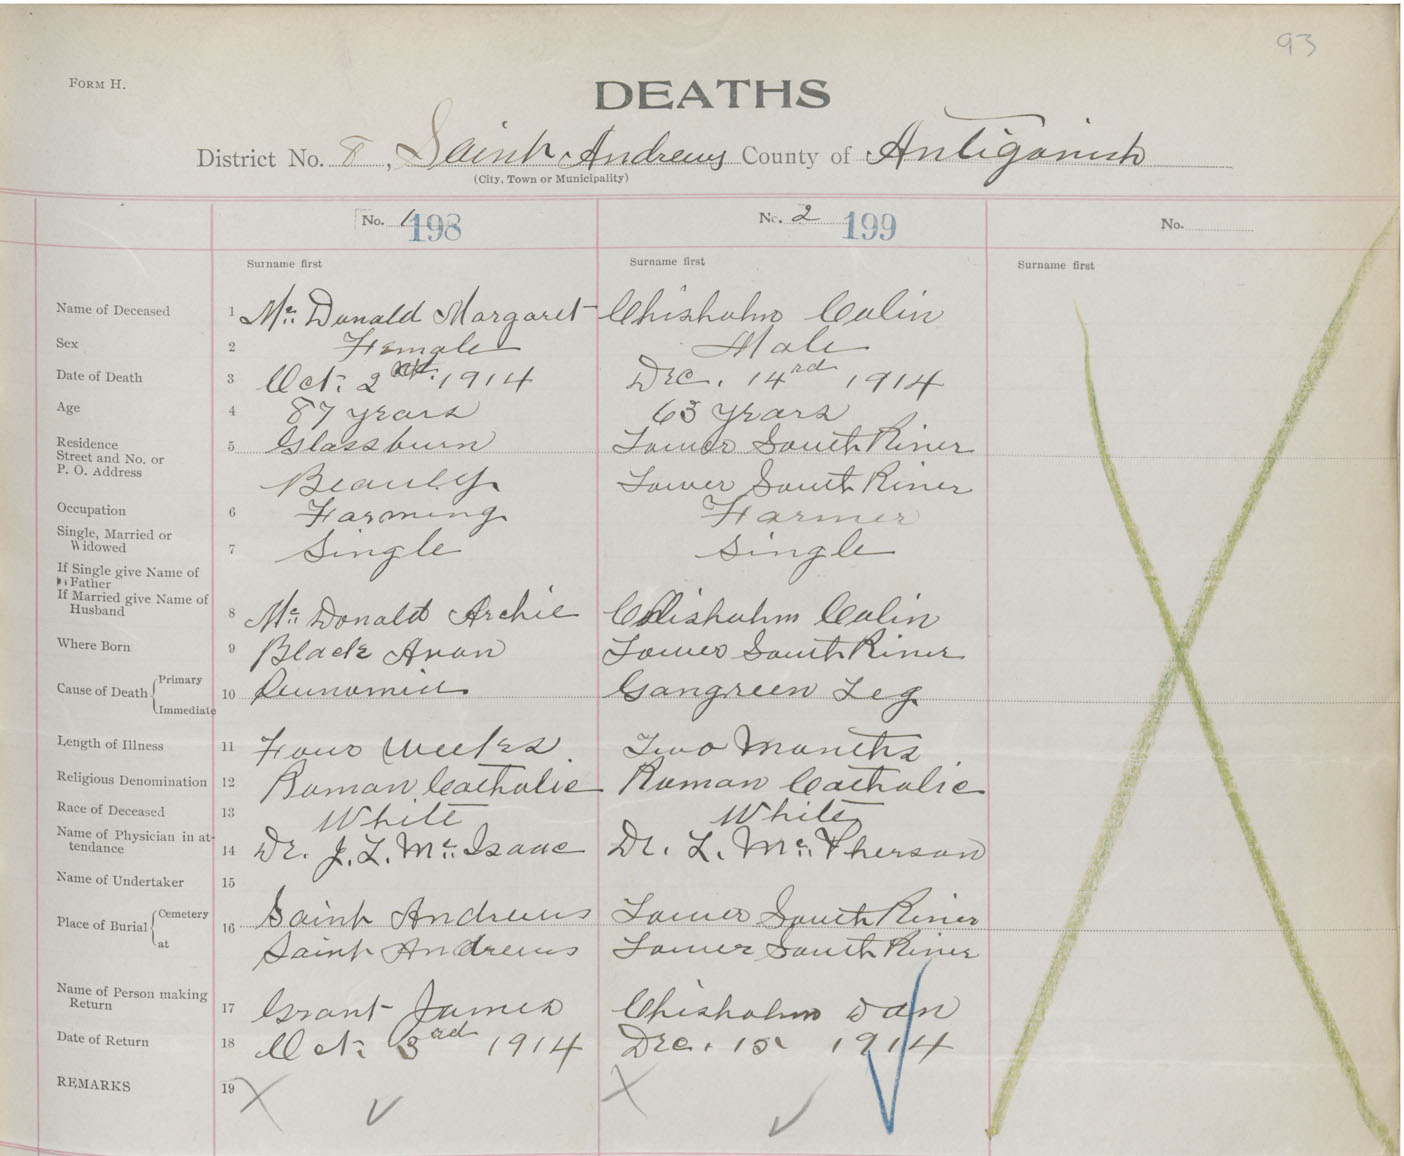 93
FORM H.
DEATHS
District No. 8, Saint Andrews County of Antigonish
(City, Town or Municipality)
No. 1 198 No. 2 199 No.
Surname first Surname first Surname first
Name of Deceased 1 Mc. Donald Margaret Chisholm Colin
Sex 2 Female Male
Date of Death 3 Oct. 2 1914 Dec. 14rd 1914
Age 4 87 years 63 years
Residence
Street and No. or 5 Glassburn Lower South River
P. O. Address
Beauly Lower South River
Occupation 6 Farming Farmer
Single, Married or
Widowed 7 Single Single
If Single give Name of
Father
If Married give Name of
Husband 8 Mc. Donald Archie Chisholm Colin
Where Born 9 Black Avon Lower South River
Cause of Death Primary
10 Gangreen Leg
Immediate
Length of Illness 11 Four weeks Two Months
Religious Denomination 12 Roman Catholic Roman Catholic
Race of Deceased 13 White White
Name of Physician in at-
tendance 14 Dr. J. L. Mc. Isaac Dr. L. Mc. Pherson
Name of Undertaker 15
Place of Burial Cemetery 16 Saint Andrews Lower South River
at Saint Andrews Lower South River
Name of Person making
Return 17 Grant James Chisholm Dan
Date of Return 18 Oct. 3rd 1914 Dec. 15 1914
REMARKS 19